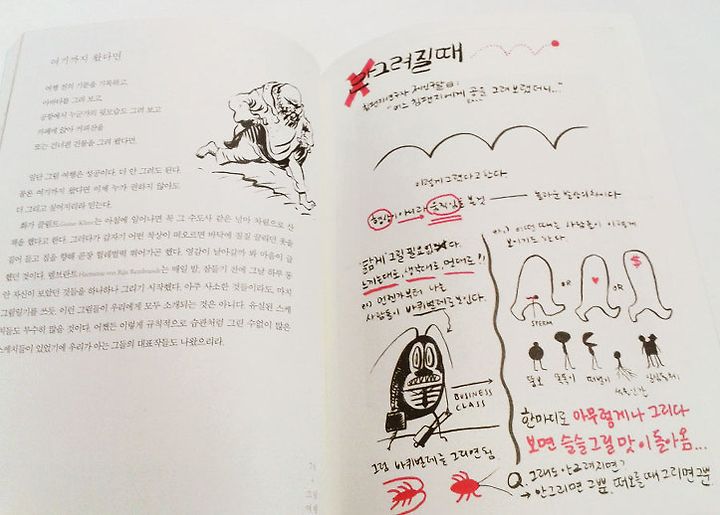 여기까지 왔다면
여행 전의 기분을 기록하고,
아바타를 그려 보고,
공항에서 누군가의 뒷모습도 그려 보고
카페에 앉아 커피잔을
또는 건너편 건물을 그려 봤다면.
일단 그림 여행은 성공이다. 더 안 그려도 된다.
물론 여기까지 왔다면 이제 누가 권하지 않아도
더 그리고 싶어지리라 믿는다.
화가 클림트Gustav Klimt는 아침에 일어나면 꼭 그 수도사 같은 차림으로 산
책을 했다고 한다. 그러다가 갑자기 어떤 착상이 떠오르면 바닥에 질질 끌리던 옷을
걷어 들고 집을 향해 곧장 헐레벌떡 뛰어가곤 했다. 영감이 날아갈까 봐 마음이 급
했던 것이다. 렘브란트Harmensz van Rijn Rembrandt는 매일 밤, 잠들기 전에 그날 하루 동
안 자신이 보았던 것들을 하나하나 그리기 시작했다. 아주 사소한 것들이라도, 마치
그림일기를 쓰듯 이런 그림들이 우리에게 모두 소개되는 것은 아니다. 유실된 스케
치들도 무수히 많을 것이다. 어쨌든 이렇게 규칙적으로 습관처럼 그린 수없이 많은
스케치들이 있었기에 우리가 아는 그들의 대표작들도 나왔으리라.
그려질 때
침팬지연구사 제인구달 曰:
"어느 침팬지에게 공을 그려 보랬더니..."
이렇게 그렸다고 한다
형상이 아니라 움직임을 본 것 놀라운 발상의 차이다
닮게 그릴 필요 없다.
느끼는대로, 생각대로, 멋대로!!
예) 언젠가부터 나는
사람들이 바퀴벌레로 보인다.
BUSINESS
CLASS
그럼 바퀴벌레를 그리면 됨
예.) 어떤 때는 사람들이 이렇게
보이기도 한다.
OR
OR
$
SPERM
한마디로 아무렇게나 그리다
보면 슬슬 그릴 맛이 돌아옴...
Q. 그래도 안 그려지면?
→ 안그리면 그뿐, 떠오를 때 그리면 그뿐.
그림
여행